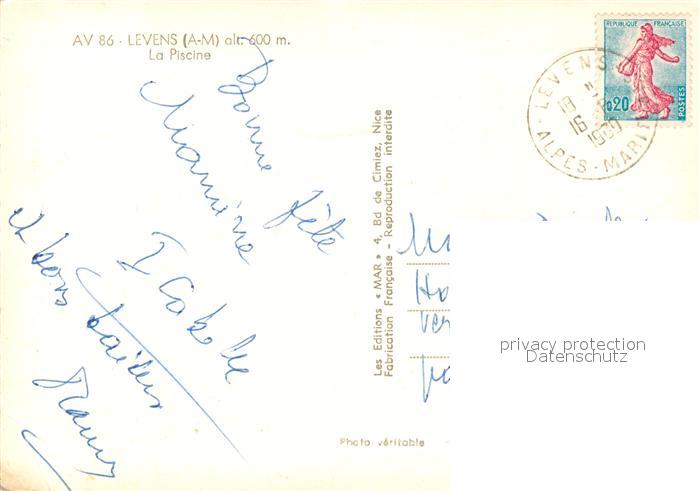 AV 86 - LEVENS (A-M) alt. 600 m.
La Piscine
Bonne fête
Mamine
Isabelle
et bons baisers
Les Editions « MAR » 4, Bd de Cimiez, Nice
Fabrication Française - Reproduction interdite
Photo véritable
REPUBLIQUE FRANÇAISE
0,20
POSTES
LEVENS
16
1960
ALPES-MARIT
Ho
Ver
privacy protection
Datenschutz